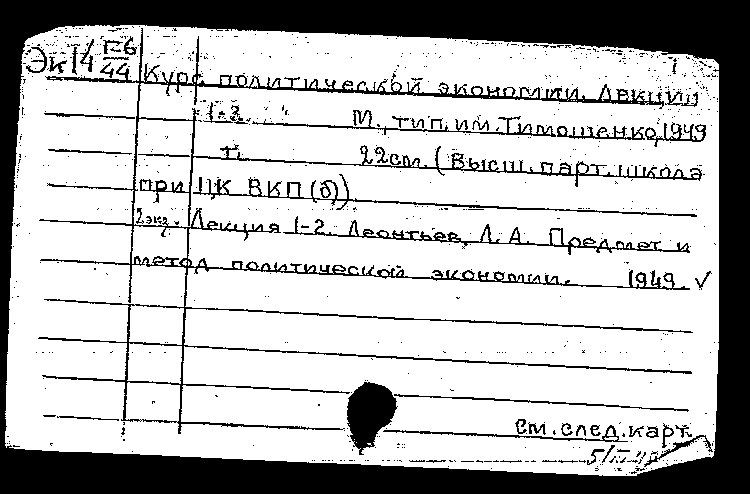 1
Эк14 Г-6/44 Курс политической экономии. Лекции
1-2. М., тип. им. Тимошенко, 1949
т. 22см. (Высш. парт. школа
при ЦК ВКП(б))
2экз. Лекция 1-2. Леонтьев, Л. А. Предмет и
метод политической экономии. 1949. ✓
См. след. карт.